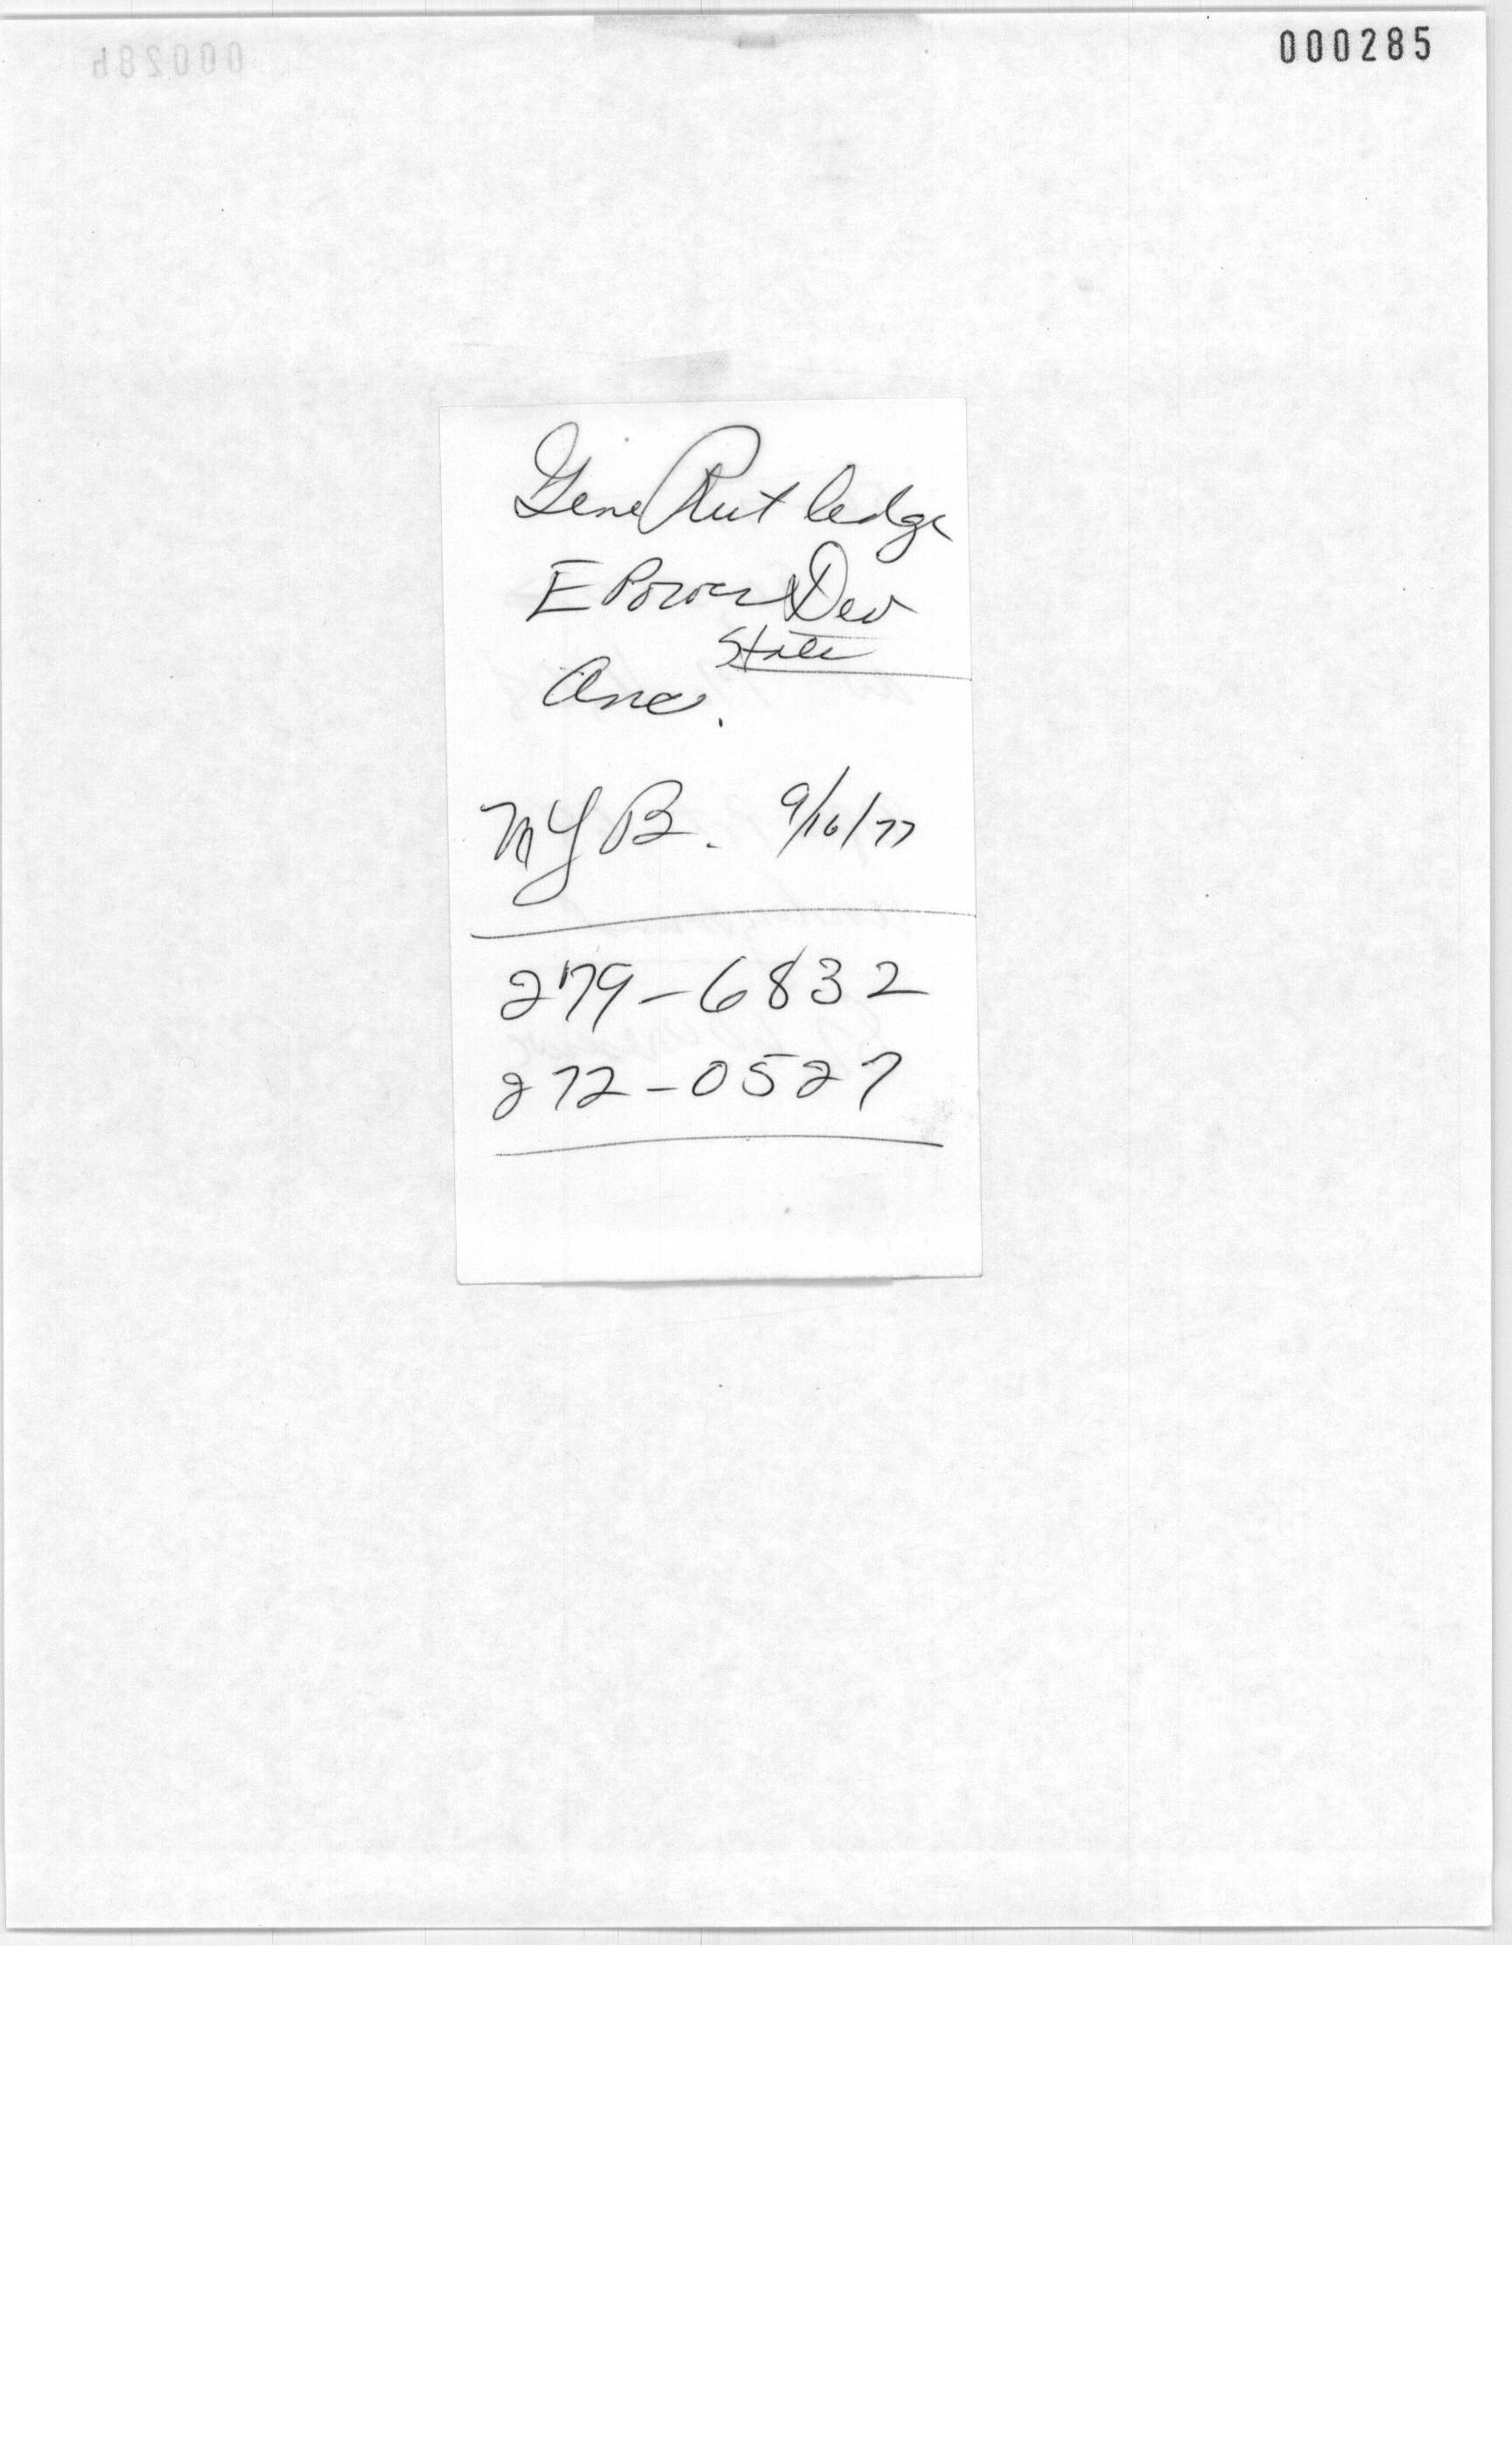 000285
Gene Rutledge
E Power Dev
State
Anc.
MYB. 9/16/77
279-6832
272-0527